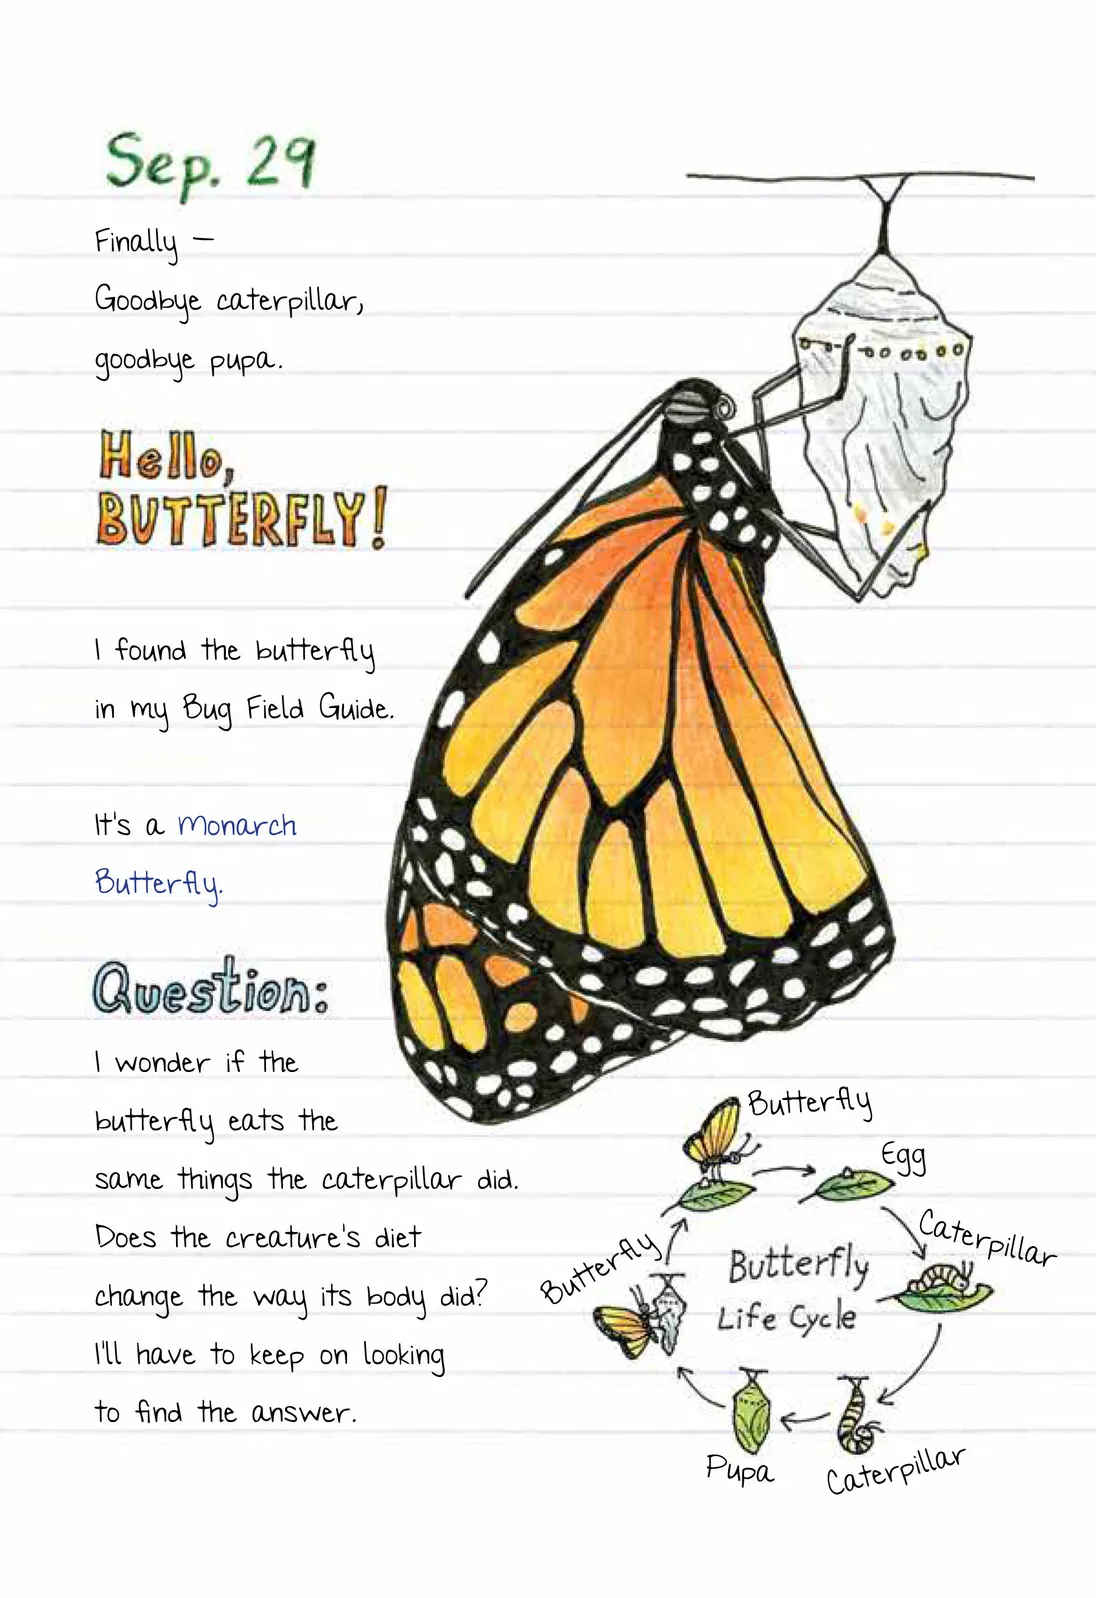 Sep. 29
Finally –
Goodbye caterpillar,
goodbye pupa.
Hello,
BUTTERFLY!
I found the butterfly
in my Bug Field Guide.
It's a Monarch
Butterfly.
Question:
I wonder if the
butterfly eats the
same things the caterpillar did.
Does the creature's diet
change the way its body did?
I'll have to keep on looking
to find the answer.
Butterfly
Egg
Caterpillar
Butterfly
Butterfly
Life Cycle
Pupa
Caterpillar